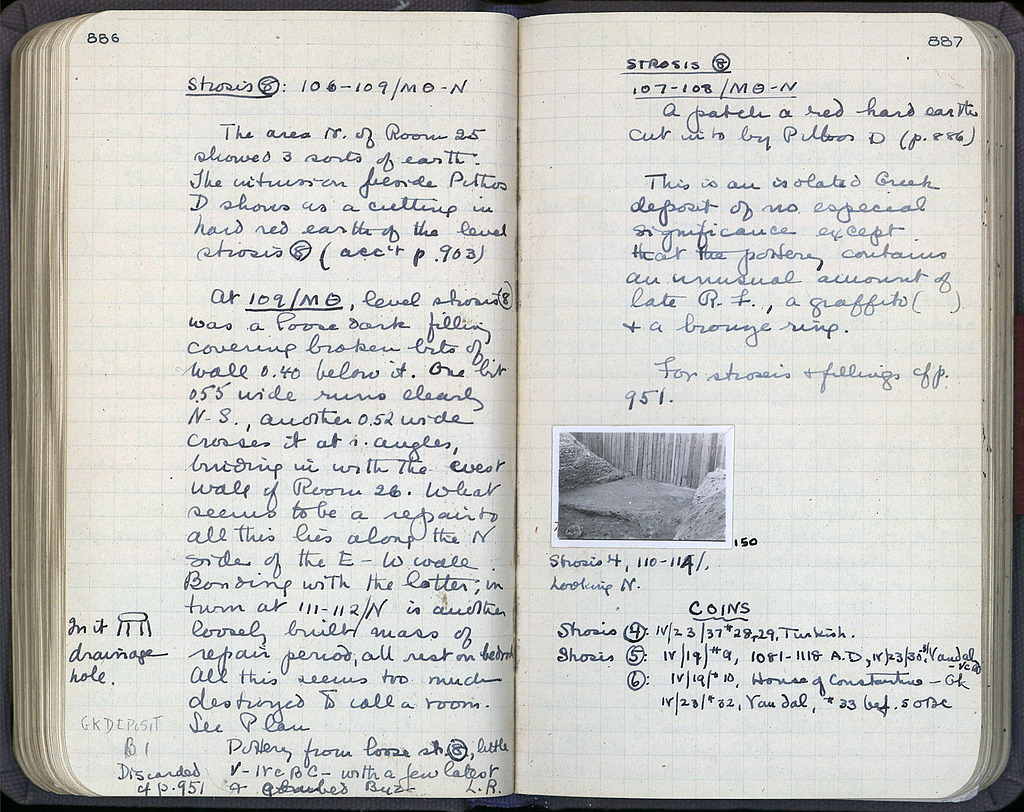 886
Strosis ⑧: 106-109/ΜΘ-Ν
The area N. of Room 25
showed 3 sorts of earth.
The intrusion beside Pithos
D shows as a cutting in
hard red earth of the level
strosis ⑧ (acc't p. 903)
At 109/ΜΘ, level strosis ⑧
was a loose dark filling
covering broken bits of
wall 0.40 below it. One bit
0.55 wide runs clearly
N-S., another 0.52 wide
crosses it at r. angles,
binding in with the west
wall of Room 26. What
seems to be a repair to
all this lies along the N
side of the E-W wall.
Bonding with the latter, in
turn at 111-112/N is another
loosely built mass of
repair period, all rest on bedrock
All this seems too much
destroyed to call a room.
See Plan
Pottery from loose str. ⑧, little
V-IV c BC - with a few latest
+ Byz L.R.
In it
drainage
hole.
GK DEPOSIT
B 1
Discarded
cf p. 951
887
STROSIS ⑧
107-108/ΜΘ-Ν
A patch a red hard earth
cut into by Pithos D (p. 886)
This is an isolated Greek
deposit of no especial
significance except
that the pottery contains
an unusual amount of
late R. F., a graffito ( )
+ a bronze ring.
For stroseis + fillings cf p.
951.
150
Strosis 4, 110-114/.
Looking N.
COINS
Strosis ④: IV/23/37 #28,29, Turkish.
Strosis ⑤: IV/19/#9, 1081-1118 A.D, IV/23/30 Vandal
⑥: IV/19/#10, House of Constantine - Gk
IV/23/#32, Vandal, #33 bef. 50 BC